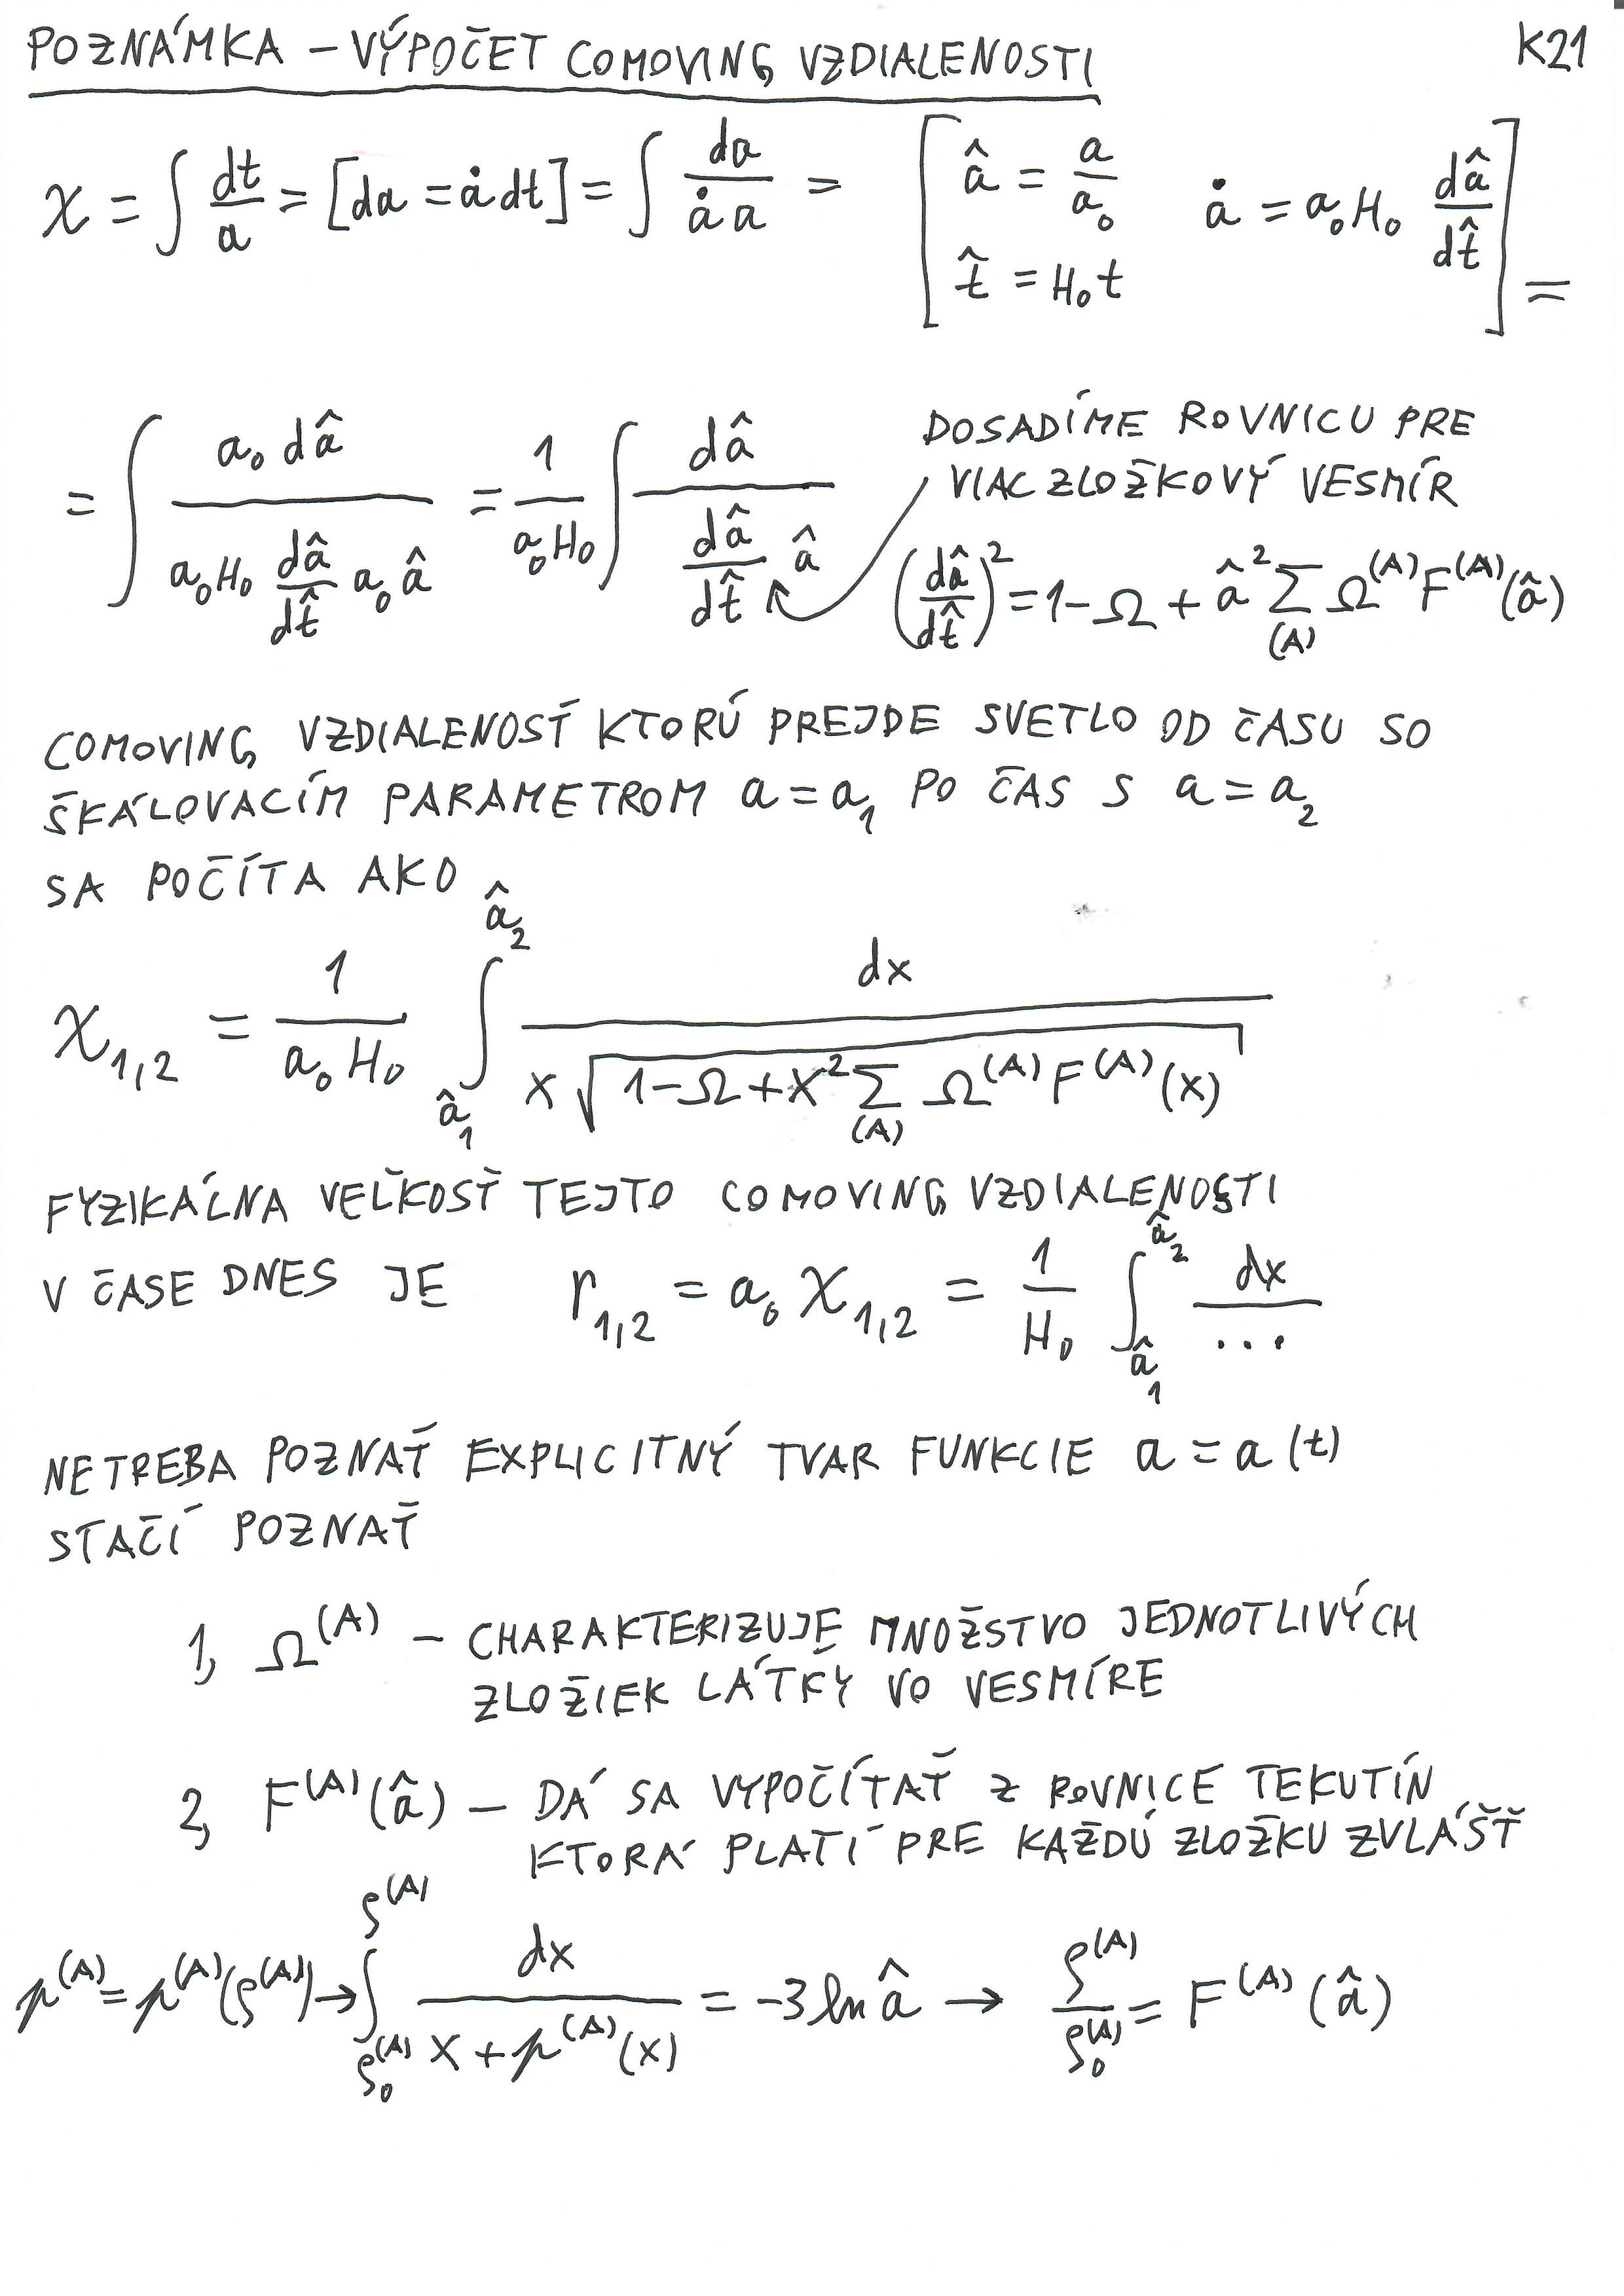 POZNÁMKA – VÝPOČET COMOVING VZDIALENOSTI K21
χ = ∫ dt/a = [da = ȧ dt] = ∫ da/(ȧ a) = [â = a/a₀ ȧ = a₀H₀ dâ/dt̂
t̂ = H₀t] =
= ∫ a₀ dâ / (a₀H₀ dâ/dt̂ a₀ â) = 1/(a₀H₀) ∫ dâ / (dâ/dt̂ â)
DOSADÍME ROVNICU PRE
VIAC ZLOŽKOVÝ VESMÍR
(dâ/dt̂)² = 1-Ω + â² Σ_(A) Ω^(A) F^(A)(â)
COMOVING VZDIALENOSŤ KTORÚ PREJDE SVETLO OD ČASU SO
ŠKÁLOVACÍM PARAMETROM a = a₁ PO ČAS S a = a₂
SA POČÍTA AKO
χ₁,₂ = 1/(a₀ H₀) ∫_â₁^â₂ dx / (x √(1-Ω + x² Σ_(A) Ω^(A) F^(A)(x)))
FYZIKÁLNA VEĽKOSŤ TEJTO COMOVING VZDIALENOSTI
V ČASE DNES JE r₁,₂ = a₀ χ₁,₂ = 1/H₀ ∫_â₁^â₂ dx/...
NETREBA POZNAŤ EXPLICITNÝ TVAR FUNKCIE a = a(t)
STAČÍ POZNAŤ
1, Ω^(A) – CHARAKTERIZUJE MNOŽSTVO JEDNOTLIVÝCH
ZLOŽIEK LÁTKY VO VESMÍRE
2, F^(A)(â) – DÁ SA VYPOČÍTAŤ Z ROVNICE TEKUTÍN
KTORÁ PLATÍ PRE KAŽDÚ ZLOŽKU ZVLÁŠŤ
p^(A) = p^(A)(ρ^(A)) → ∫_ρ₀^(A)^ρ^(A) dx / (x + p^(A)(x)) = -3 ln â → ρ^(A)/ρ₀^(A) = F^(A)(â)